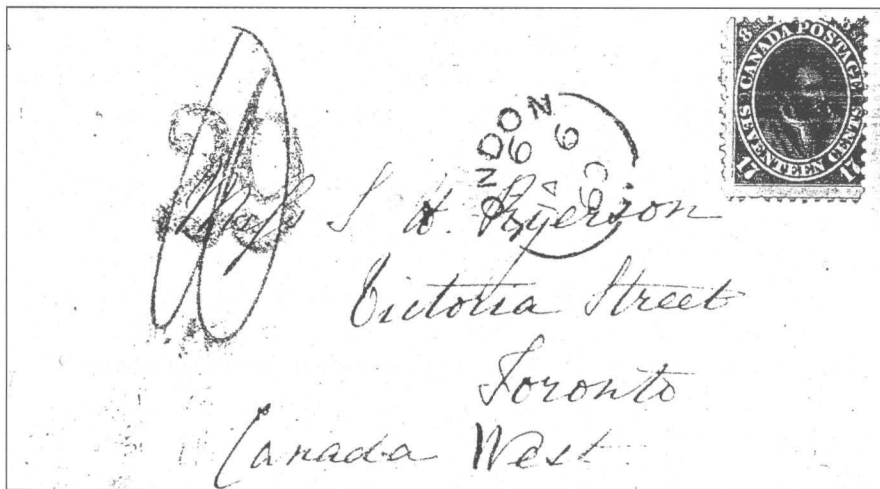 8 CANADA POSTAGE
SEVENTEEN CENTS
17 17
LONDON
20
S H. Ryerson
Victoria Street
Toronto
Canada West